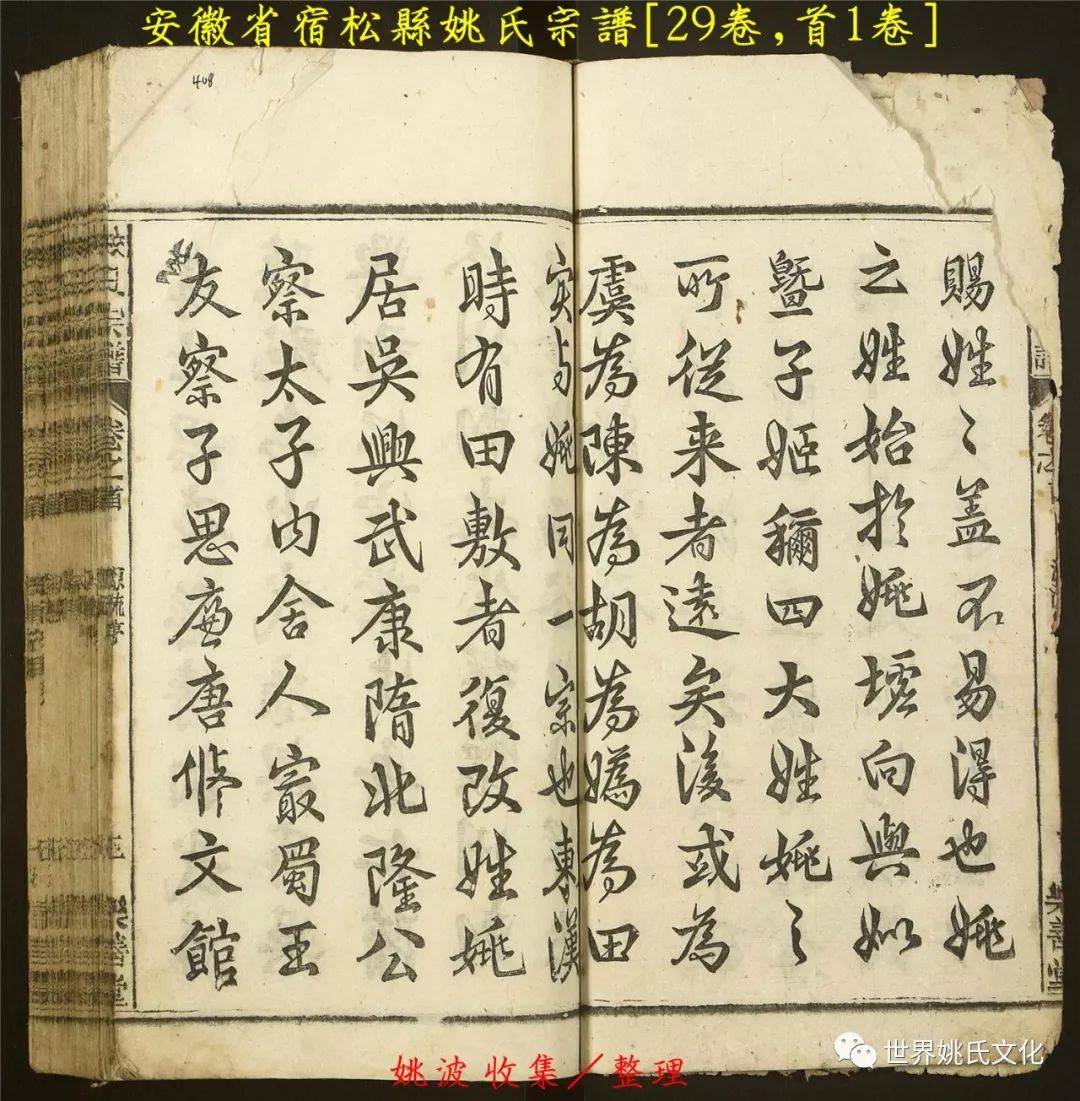 安徽省宿松縣姚氏宗譜[29卷,首1卷]
408
賜姓〻盖不易得也姚
之姓始於姚墟向與姒
曁子姬穪四大姓姚之
所從来者遠矣後或為
虞為陳為胡為嬀為田
实与姚同一宗也東漢
時有田敷者復改姓姚
居吳興武康隋北隆公
察太子內舍人㝡蜀王
友察子思廉唐脩文館
氏宗譜 卷之首 源流序 樂善堂
姚波收集/整理
世界姚氏文化